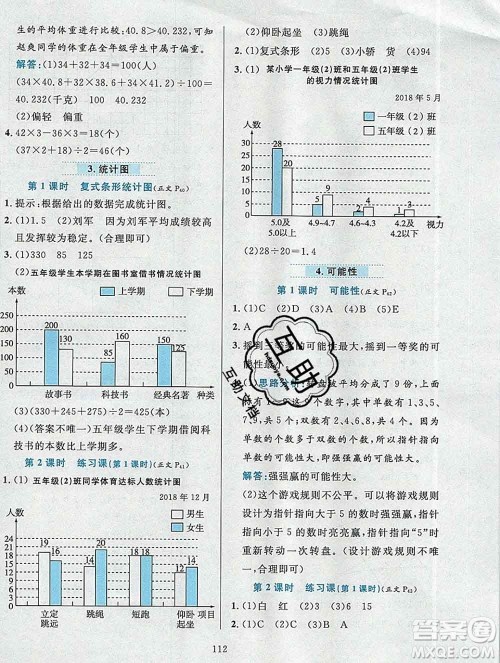 生的平均体重进行比较:40.8>40.232,因此
赵爽同学的体重在全年级学生中属于偏重。
解答:(1)34+32+34=100(人)
(34×40.8+32×41+34×38.94)÷100=
40.232(千克) 40.232
(2)偏轻 偏重
4. 42×3-36×3=18(个)
(36+18)÷2=27(个)
3. 统计图
第1课时 复式条形统计图(正文P60)
1. 提示:根据给出的数据完成统计图。
2. (1)1.5 (2)刘军 因为刘军平均成绩较高
且呈上升趋势。(合理即可)
3. (1)330 85 125
(2)五年级学生本学期在图书室借书情况统计图
本数 上学期 下学期
300
250
200
150
100
50
0
200 130 85 115 150 125
故事书 科技书 经典名著 种类
(3)(330+245+275)÷2=425(本)
(4)(答案不唯一)五年级学生下学期借阅科
技书的本数比上学期多。
第2课时 练习课(第1课时)(正文P61)
1. (1) 五年级(2)班同学体育达标人数统计图
2018年12月
人数 男生 女生
24
21
18
15
12
9
6
3
0
19 16 14 20 18 18 14 20
立定跳远 跳绳 短跑 仰卧起坐 项目
112
(2)仰卧起坐 (3)跳绳
2. (1)复式条形 (2)35 (3)小轿 货 (4)94
3. (1) 某小学一年级(2)班和五年级(2)班学生
的视力情况统计图
2018年5月
一年级(2)班
五年级(2)班
人数
35
30
25
20
15
10
5
0
28 20 5 9 4 8 1 3
5.0及5.0以上 4.9~4.7 4.6~4.3 4.2及4.2以下 视力
(2)28÷20=1.4
4. 可能性
第1课时 可能性(正文P62)
1. (1)C (2)D (3)A (4)B (5)E
2. A
3. 摇到三等奖的可能性最大,摇到一等奖的可能
性最小。
4. (1)思路分析:转盘被平均分成了9份,
单数的个数多于双数的个数,所以指针指向
单数的可能性大。
解答:强强赢的可能性大。
(2)这个游戏规则不公平,可以设计为:指针
指向大于5的数时强强赢,指针指向小于5
的数时亮亮赢,指针指向“5”时
重新转动一次转盘。(设计游戏规则不唯
一,合理即可)
第2课时 练习课(第1课时)(正文P63)
1. (1)白 红 (2)3 (3)6 15
2. (1)B (2)A (3)D
互助
互助文档
答案圈
MXQE.COM